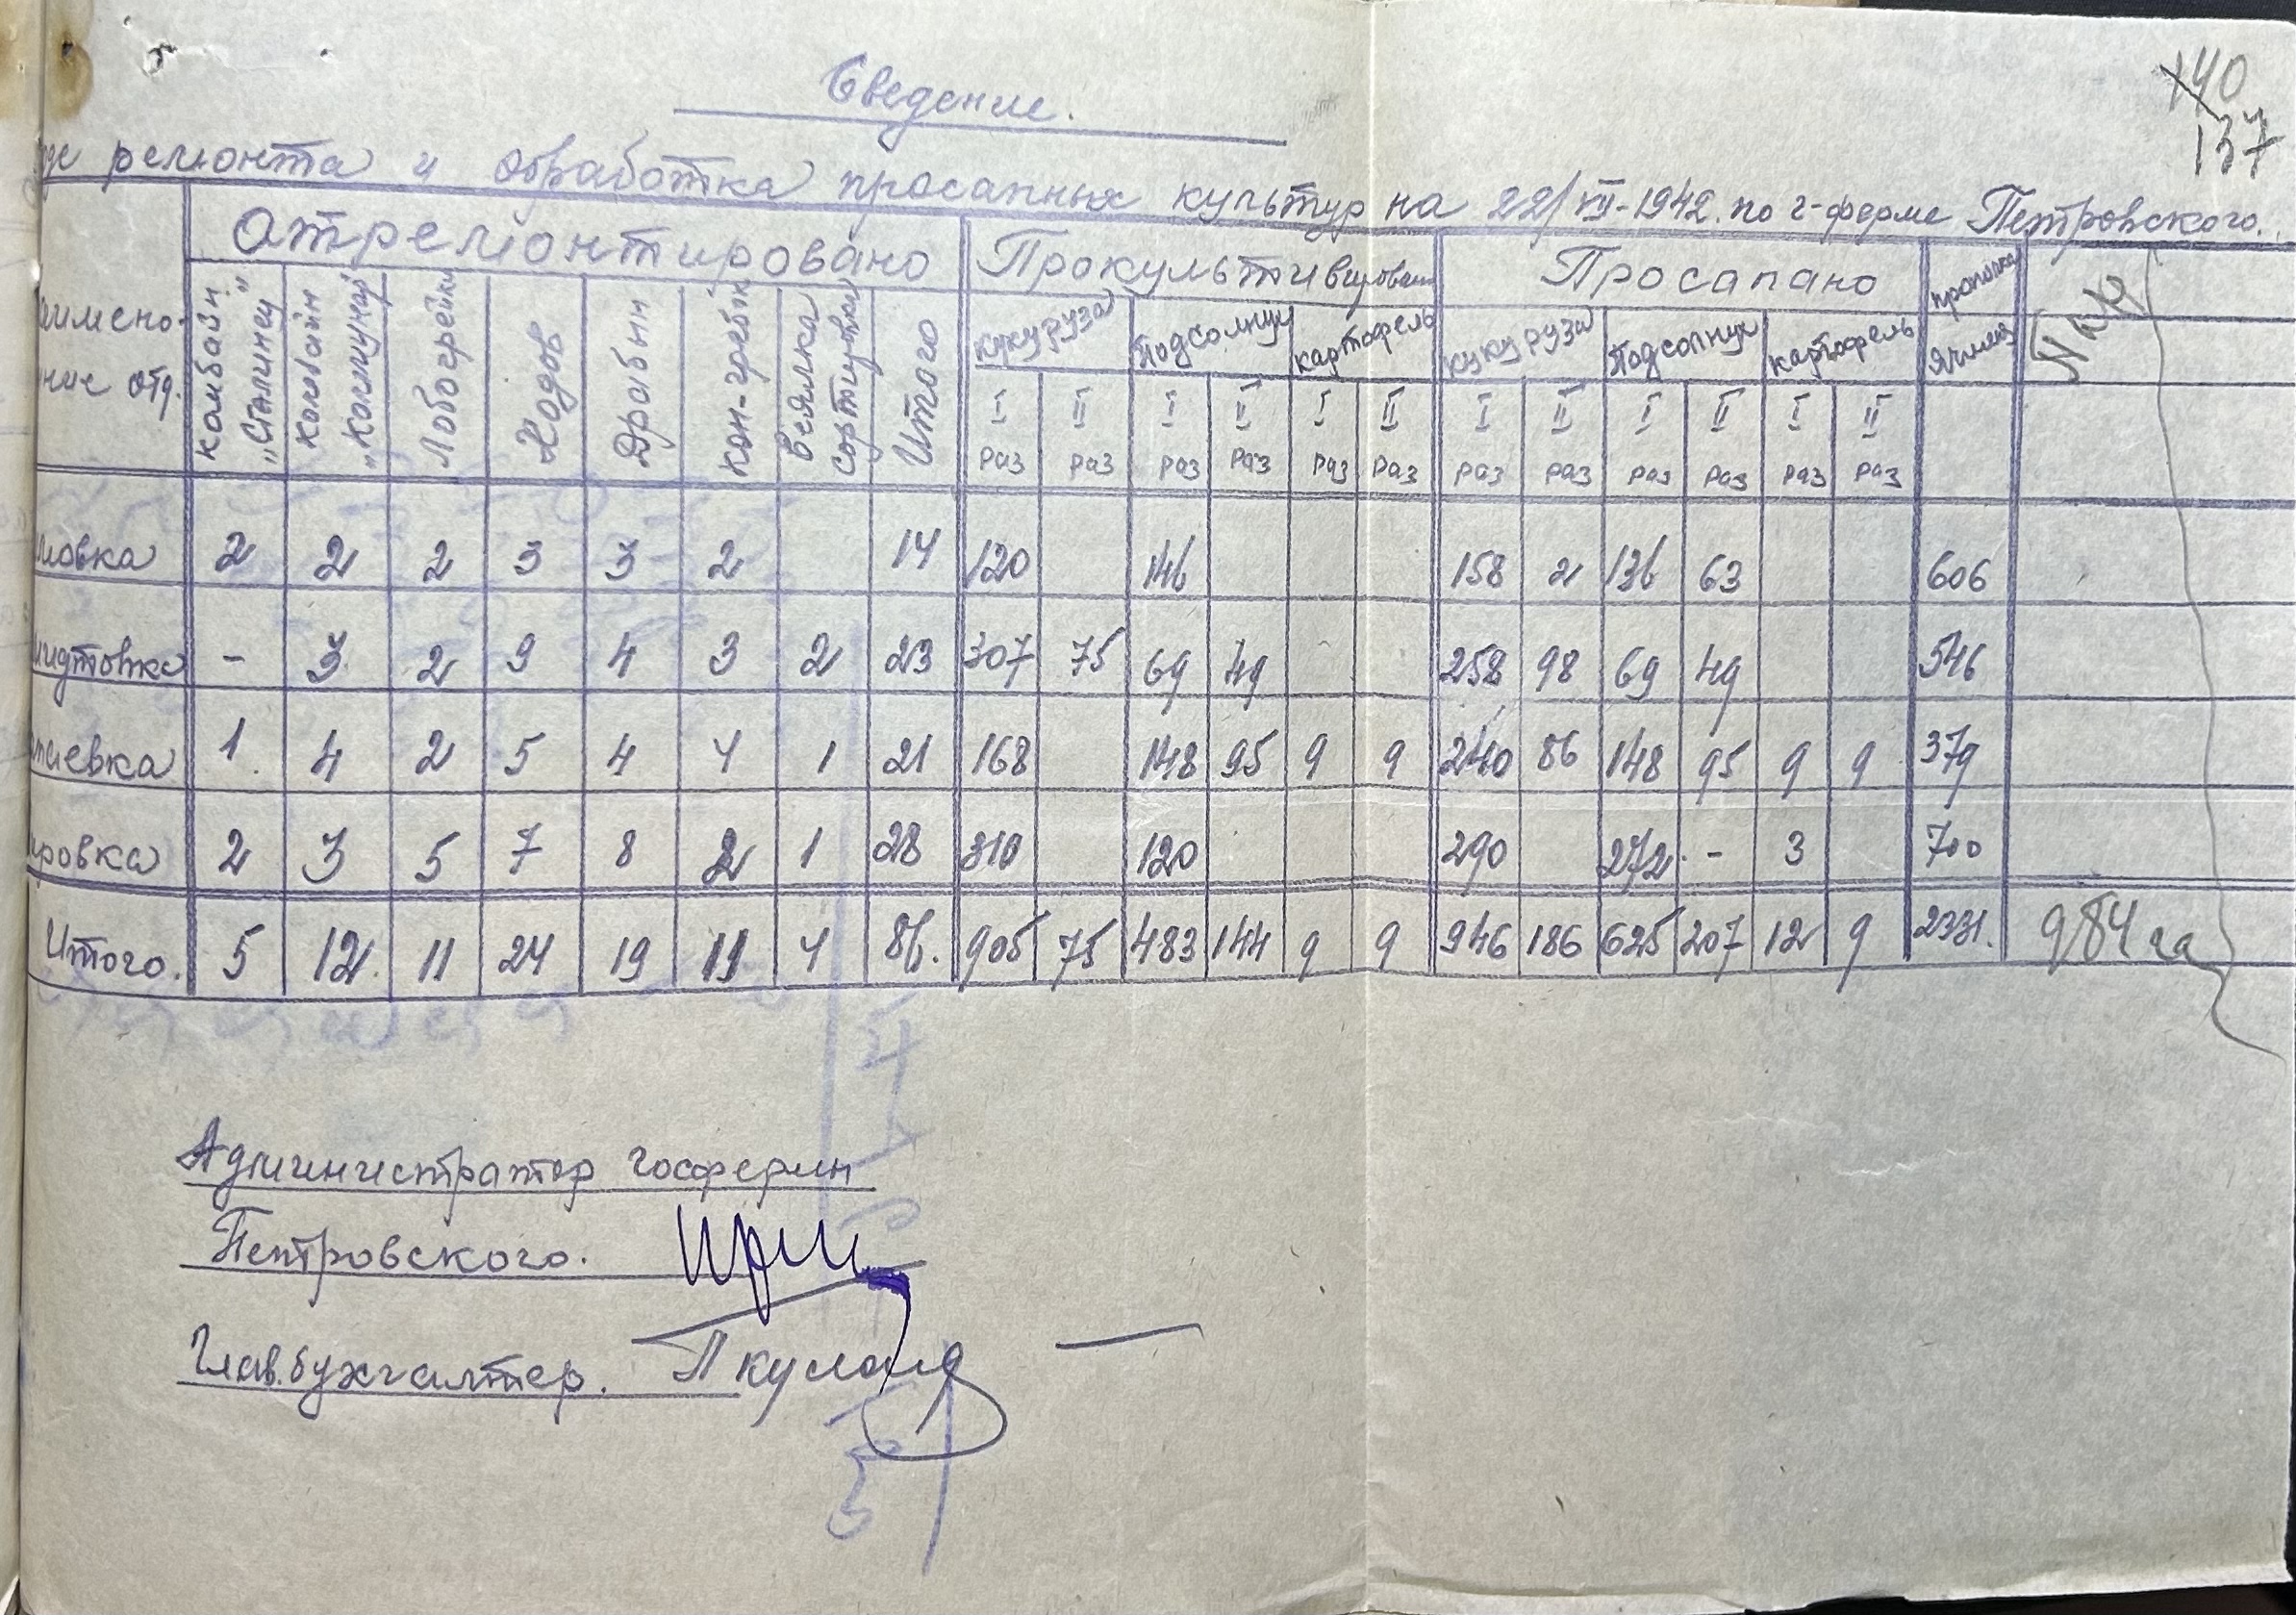 140
137
Сведение.
ремонта и обработка просапных культур на 22/VII-1942. по г-ферме Петровского.
Отремонтировано Прокультивировано Просапано прополка
кукуруза подсолнух картофель кукуруза подсолнух картофель ячменя
отд. Комбайн „Сталинец" Комбайн „Коммунар" Лобогрейки Ходов Драбын Кон-гребок Веялка сортировка Итого I раз II раз I раз II раз I раз II раз I раз II раз I раз II раз I раз II раз
мовка 2 2 2 3 3 2 14 120 146 158 2 136 63 606
мидтовка - 3 2 9 4 3 2 23 307 75 69 49 258 98 69 49 546
евка 1 4 2 5 4 4 1 21 168 148 95 9 9 240 86 148 95 9 9 379
ровка 2 3 5 7 8 2 1 28 310 120 290 272 - 3 700
Итого. 5 12 11 24 19 11 4 86. 905 75 483 144 9 9 946 186 625 207 12 9 2331. 984 га
Администратор госфермы
Петровского.
Глав.бухгалтер.